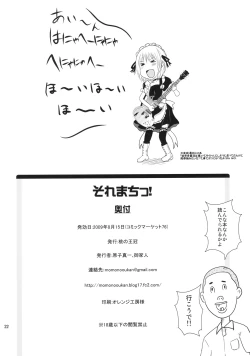 あぃ〜ん
はにゃへ〜にゃにゃ
へにゃじゃへ〜
ほ〜いほ〜い
ほ〜い
それまちっ!
奥付
発効日:2009年8月15日(コミックマーケット76)
発行:桃の王冠
発行者:黒子真一、師走人
連絡先:momonooukan@gmail.com
http://momonooukan.blog17.fc2.com/
印刷:オレンジ工房様
※18歳以下の閲覧禁止
こんな本なんか
読んでられるかよ
行こうぜ!!
32